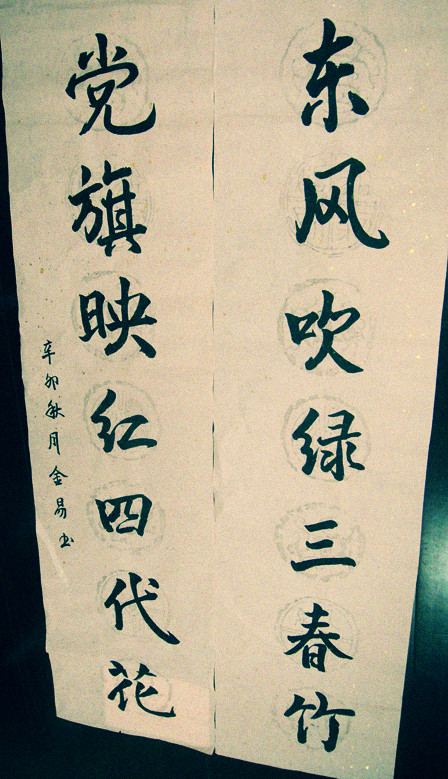 东风吹绿三春竹
党旗映红四代花
辛卯秋月金易书